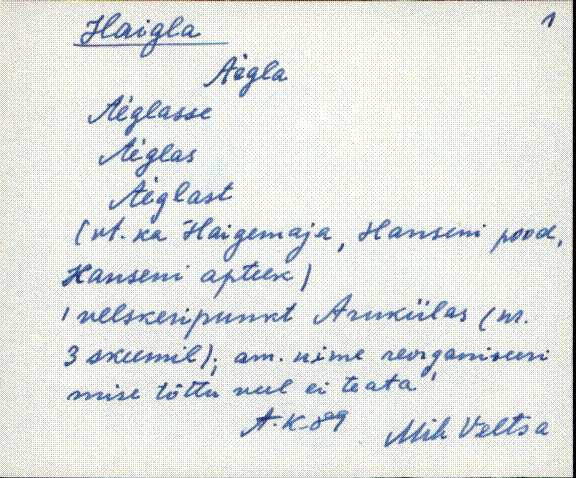 1
Haigla
Aégla
Aéglasse
Aéglas
Aéglast
(vt. ka Haigemaja, Hanseni pood,
Hanseni apteek)
'velskeripunkt Arukülas (nr.
3 skeemil); am. nime reorganiseeri
mise tõttu veel ei teata'
A.K. 89
Mih Veltsa